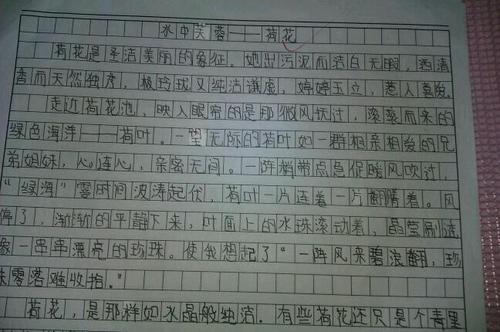 水中芙蓉——荷花
荷花是圣洁美丽的象征。她出污泥而洁白无暇,洒清
香而天然独序,极玲珑又纯洁谦虚,婷婷玉立,惹人喜爱。
走近荷花池,映入眼帘的是那微风抚过,滚滚而来的
绿色海洋——荷叶。一望无际的荷叶如一群相亲相爱的兄
弟姐妹,心连心,亲密无间。一阵稍带点急促暖风吹过,
“绿海”霎时间波涛起伏,荷叶一片连着一片翻腾着。风
停了,渐渐的平静下来,叶面上的水珠滚动着,晶莹剔透
象一串串漂亮的珍珠。使我想起了“一阵风来碧浪翻,珍
珠零落难收拾。”
荷花,是那样如水晶般纯洁。有些荷花还只是个青里